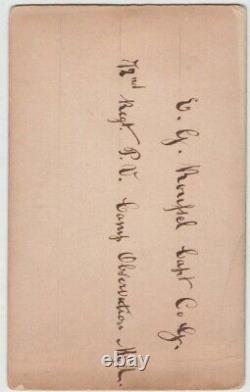 E. G. Roussel Capt Co. G.
72nd Regt. P. V. Camp Observation Md.